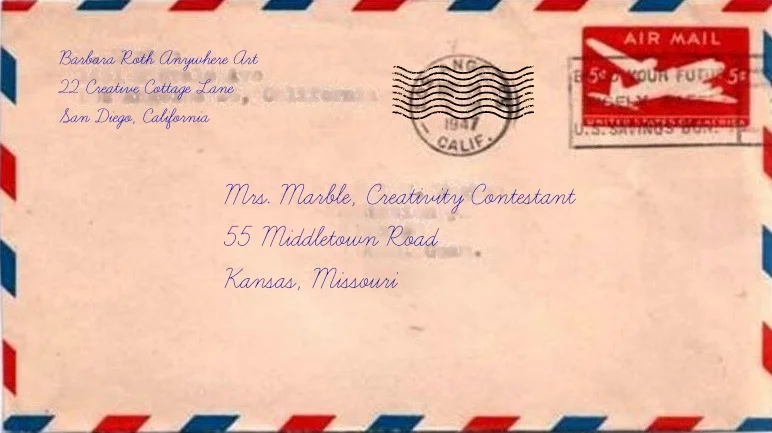 Barbara Roth Anywhere Art
22 Creative Cottage Lane
San Diego, California
1947
CALIF.
AIR MAIL
5¢ 5¢
UNITED STATES OF AMERICA
YOUR
U.S. SAVINGS
Mrs. Marble, Creativity Contestant
55 Middletown Road
Kansas, Missouri